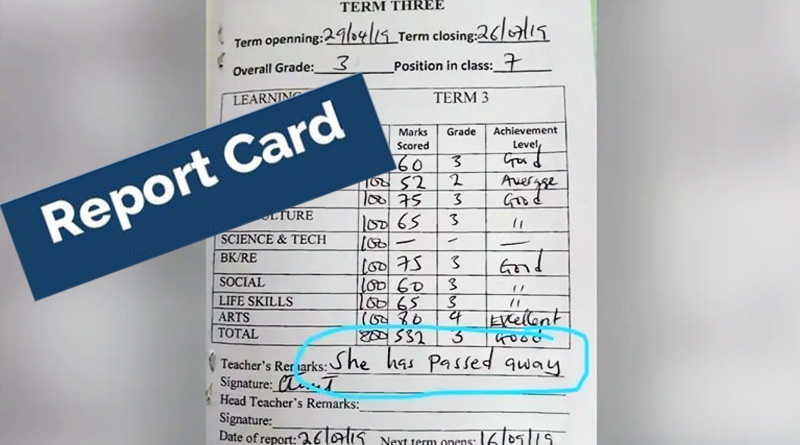 TERM THREE
Term openning: 29/04/19 Term closing: 26/07/19
Overall Grade: 3 Position in class: 7
LEARNING TERM 3
Marks Scored Grade Achievement Level
60 3 Good
100 52 2 Average
100 75 3 Good
CULTURE 100 65 3 "
SCIENCE & TECH 100 — - —
BK/RE 100 75 3 Good
SOCIAL 100 60 3 "
LIFE SKILLS 100 65 3 "
ARTS 100 80 4 Excellent
TOTAL 800 532 3 Good
Teacher's Remarks: She has passed away
Signature:
Head Teacher's Remarks:
Signature:
Date of report: 26/07/19 Next term opens: 16/09/19
Report Card